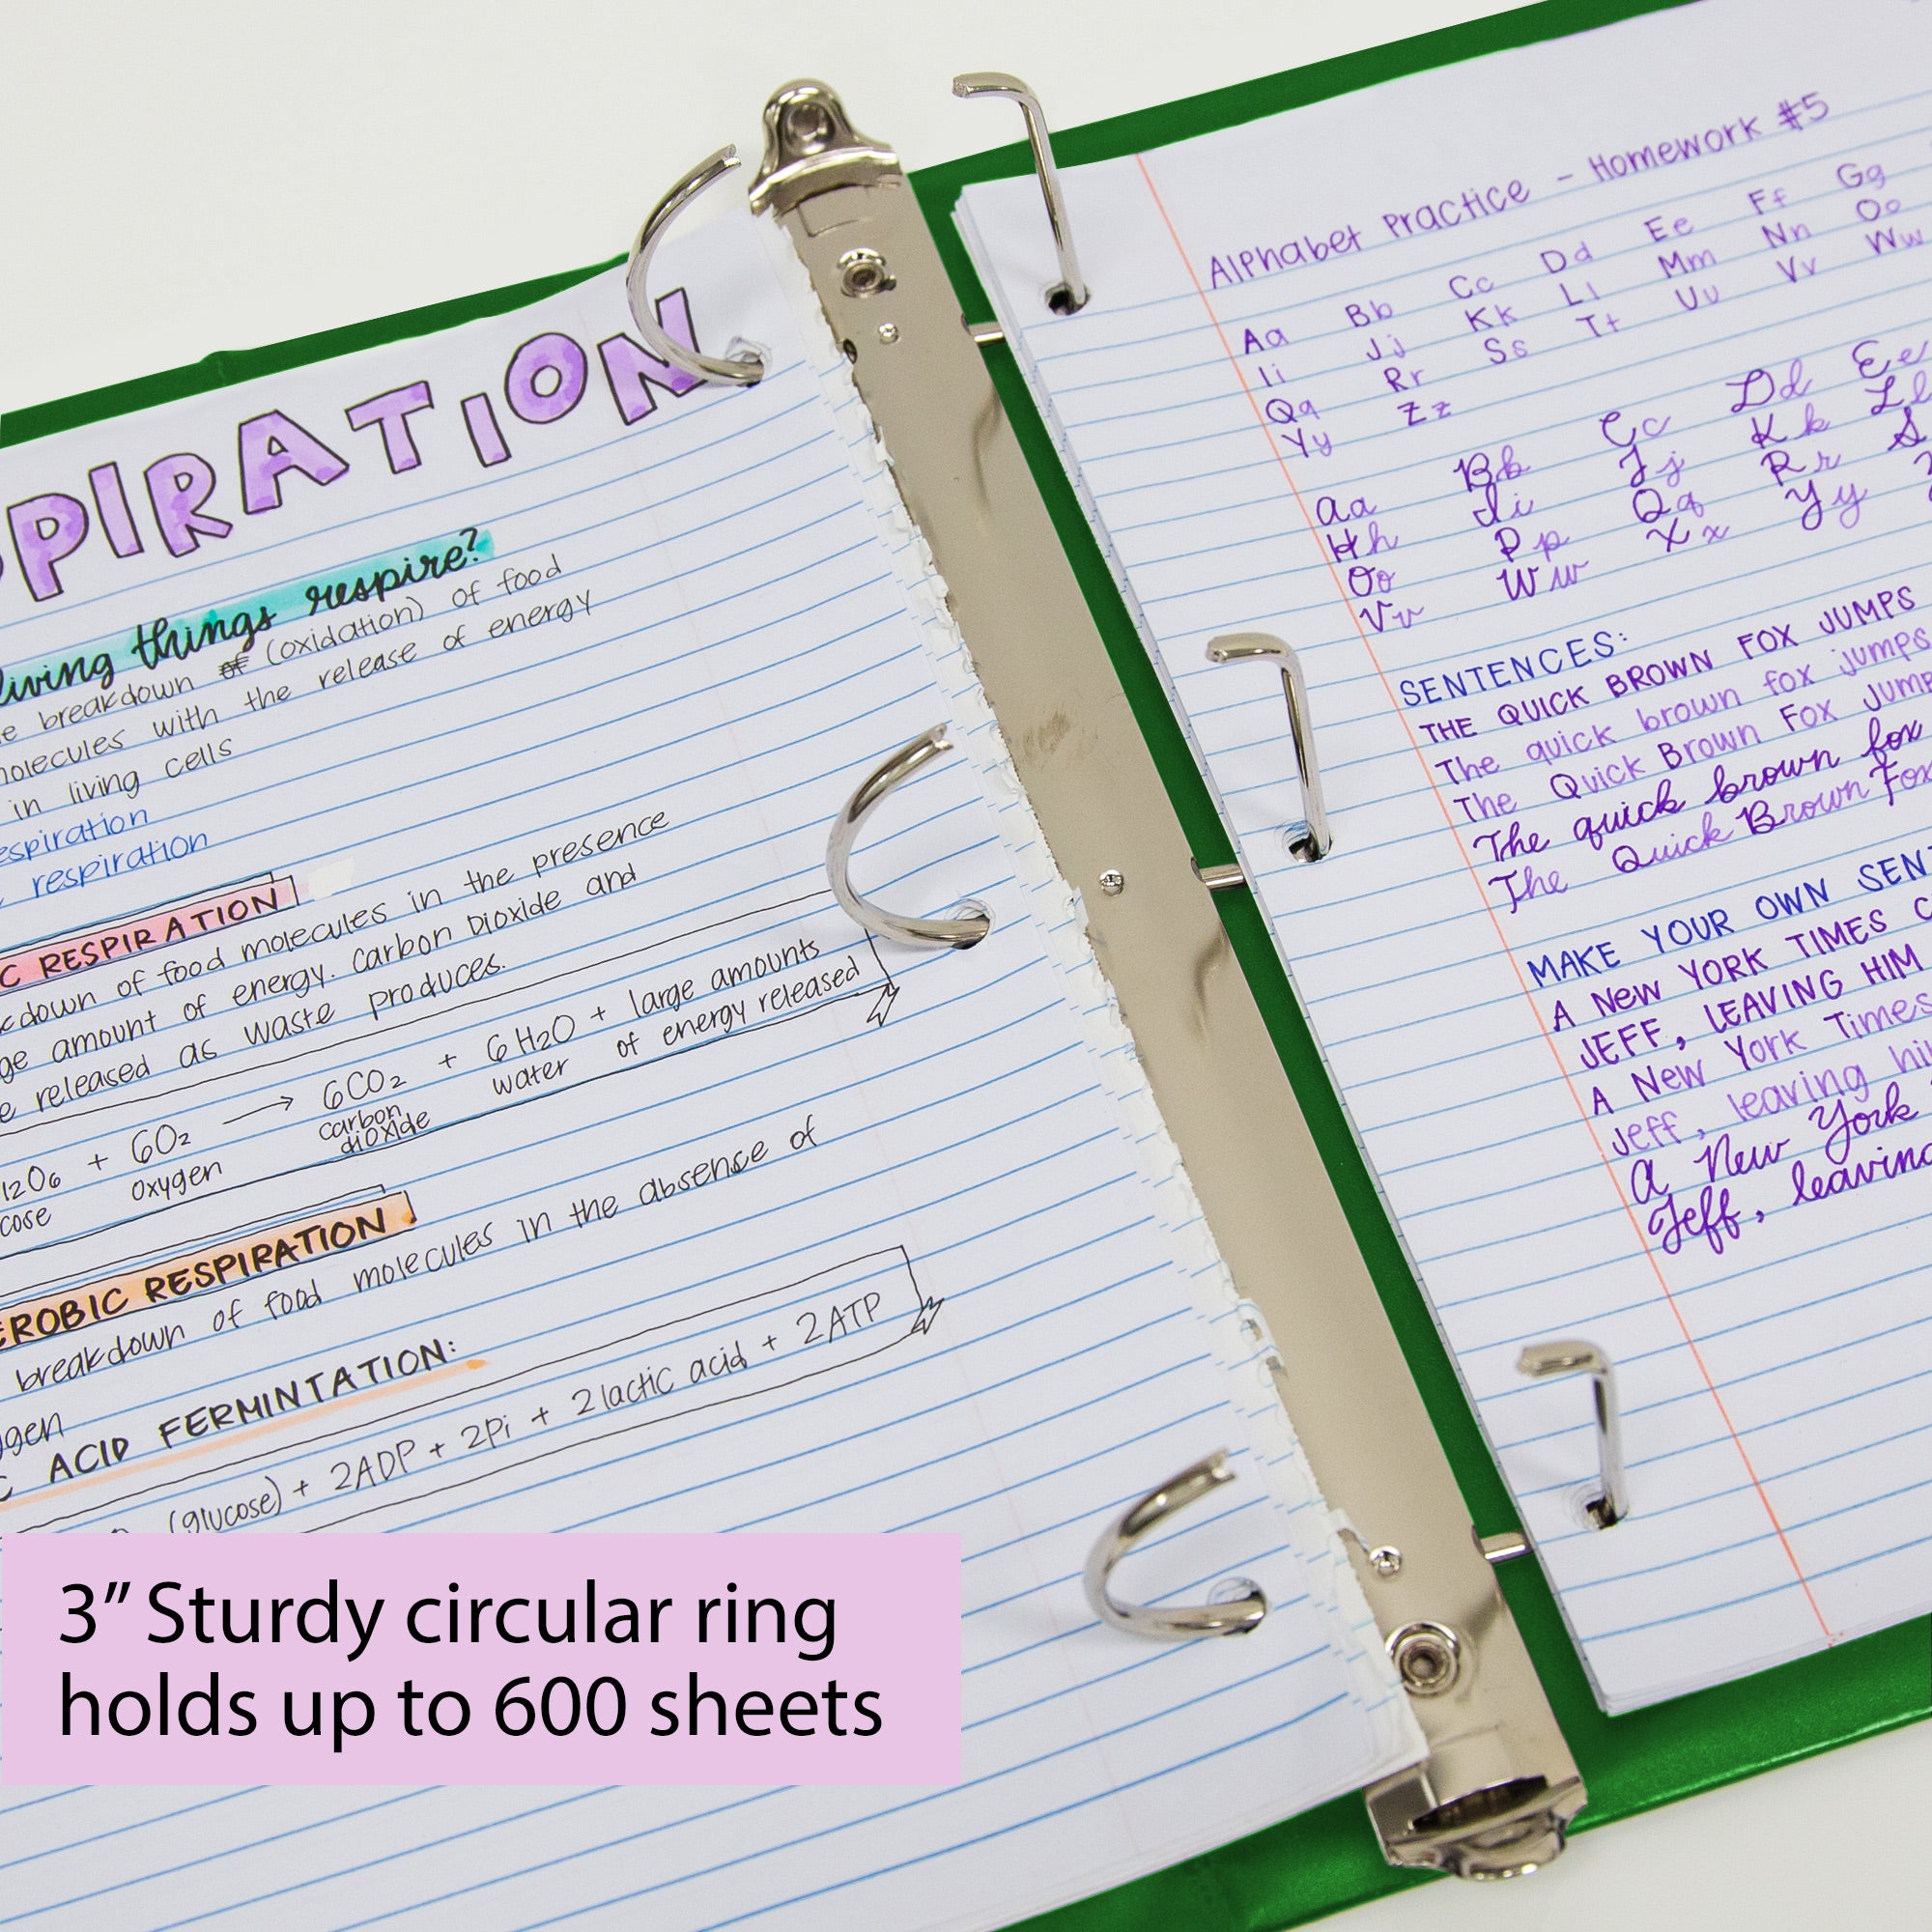 PIRATION
living things respire?
breakdown of (oxidation) of food
molecules with the release of energy
in living cells
respiration
respiration
C RESPIRATION
kdown of food molecules in the presence
ge amount of energy. Carbon Dioxide and
e released as waste produces.
12O6 + 6O2 → 6CO2 + 6H2O + large amounts
cose oxygen carbon dioxide water of energy released
EROBIC RESPIRATION
breakdown of food molecules in the absence of
ygen
C ACID FERMINTATION:
(glucose) + 2ADP + 2Pi + 2lactic acid + 2ATP
Alphabet Practice - Homework #5
Aa Bb Cc Dd Ee Ff Gg
Ii Jj Kk Ll Mm Nn Oo
Qq Rr Ss Tt Uu Vv Ww
Yy Zz
Aa Bb Cc Dd Ee
Hh Ii Jj Kk Ll
Oo Pp Qq Rr S
Vv Ww Xx Yy
SENTENCES:
THE QUICK BROWN FOX JUMPS
The quick brown fox jumps
The Quick Brown Fox Jump
The quick brown fox
The Quick Brown Fox
MAKE YOUR OWN SENT
A NEW YORK TIMES C
JEFF, LEAVING HIM
A New York Times
Jeff, leaving hi
A New York
Jeff, leaving
3” Sturdy circular ring
holds up to 600 sheets